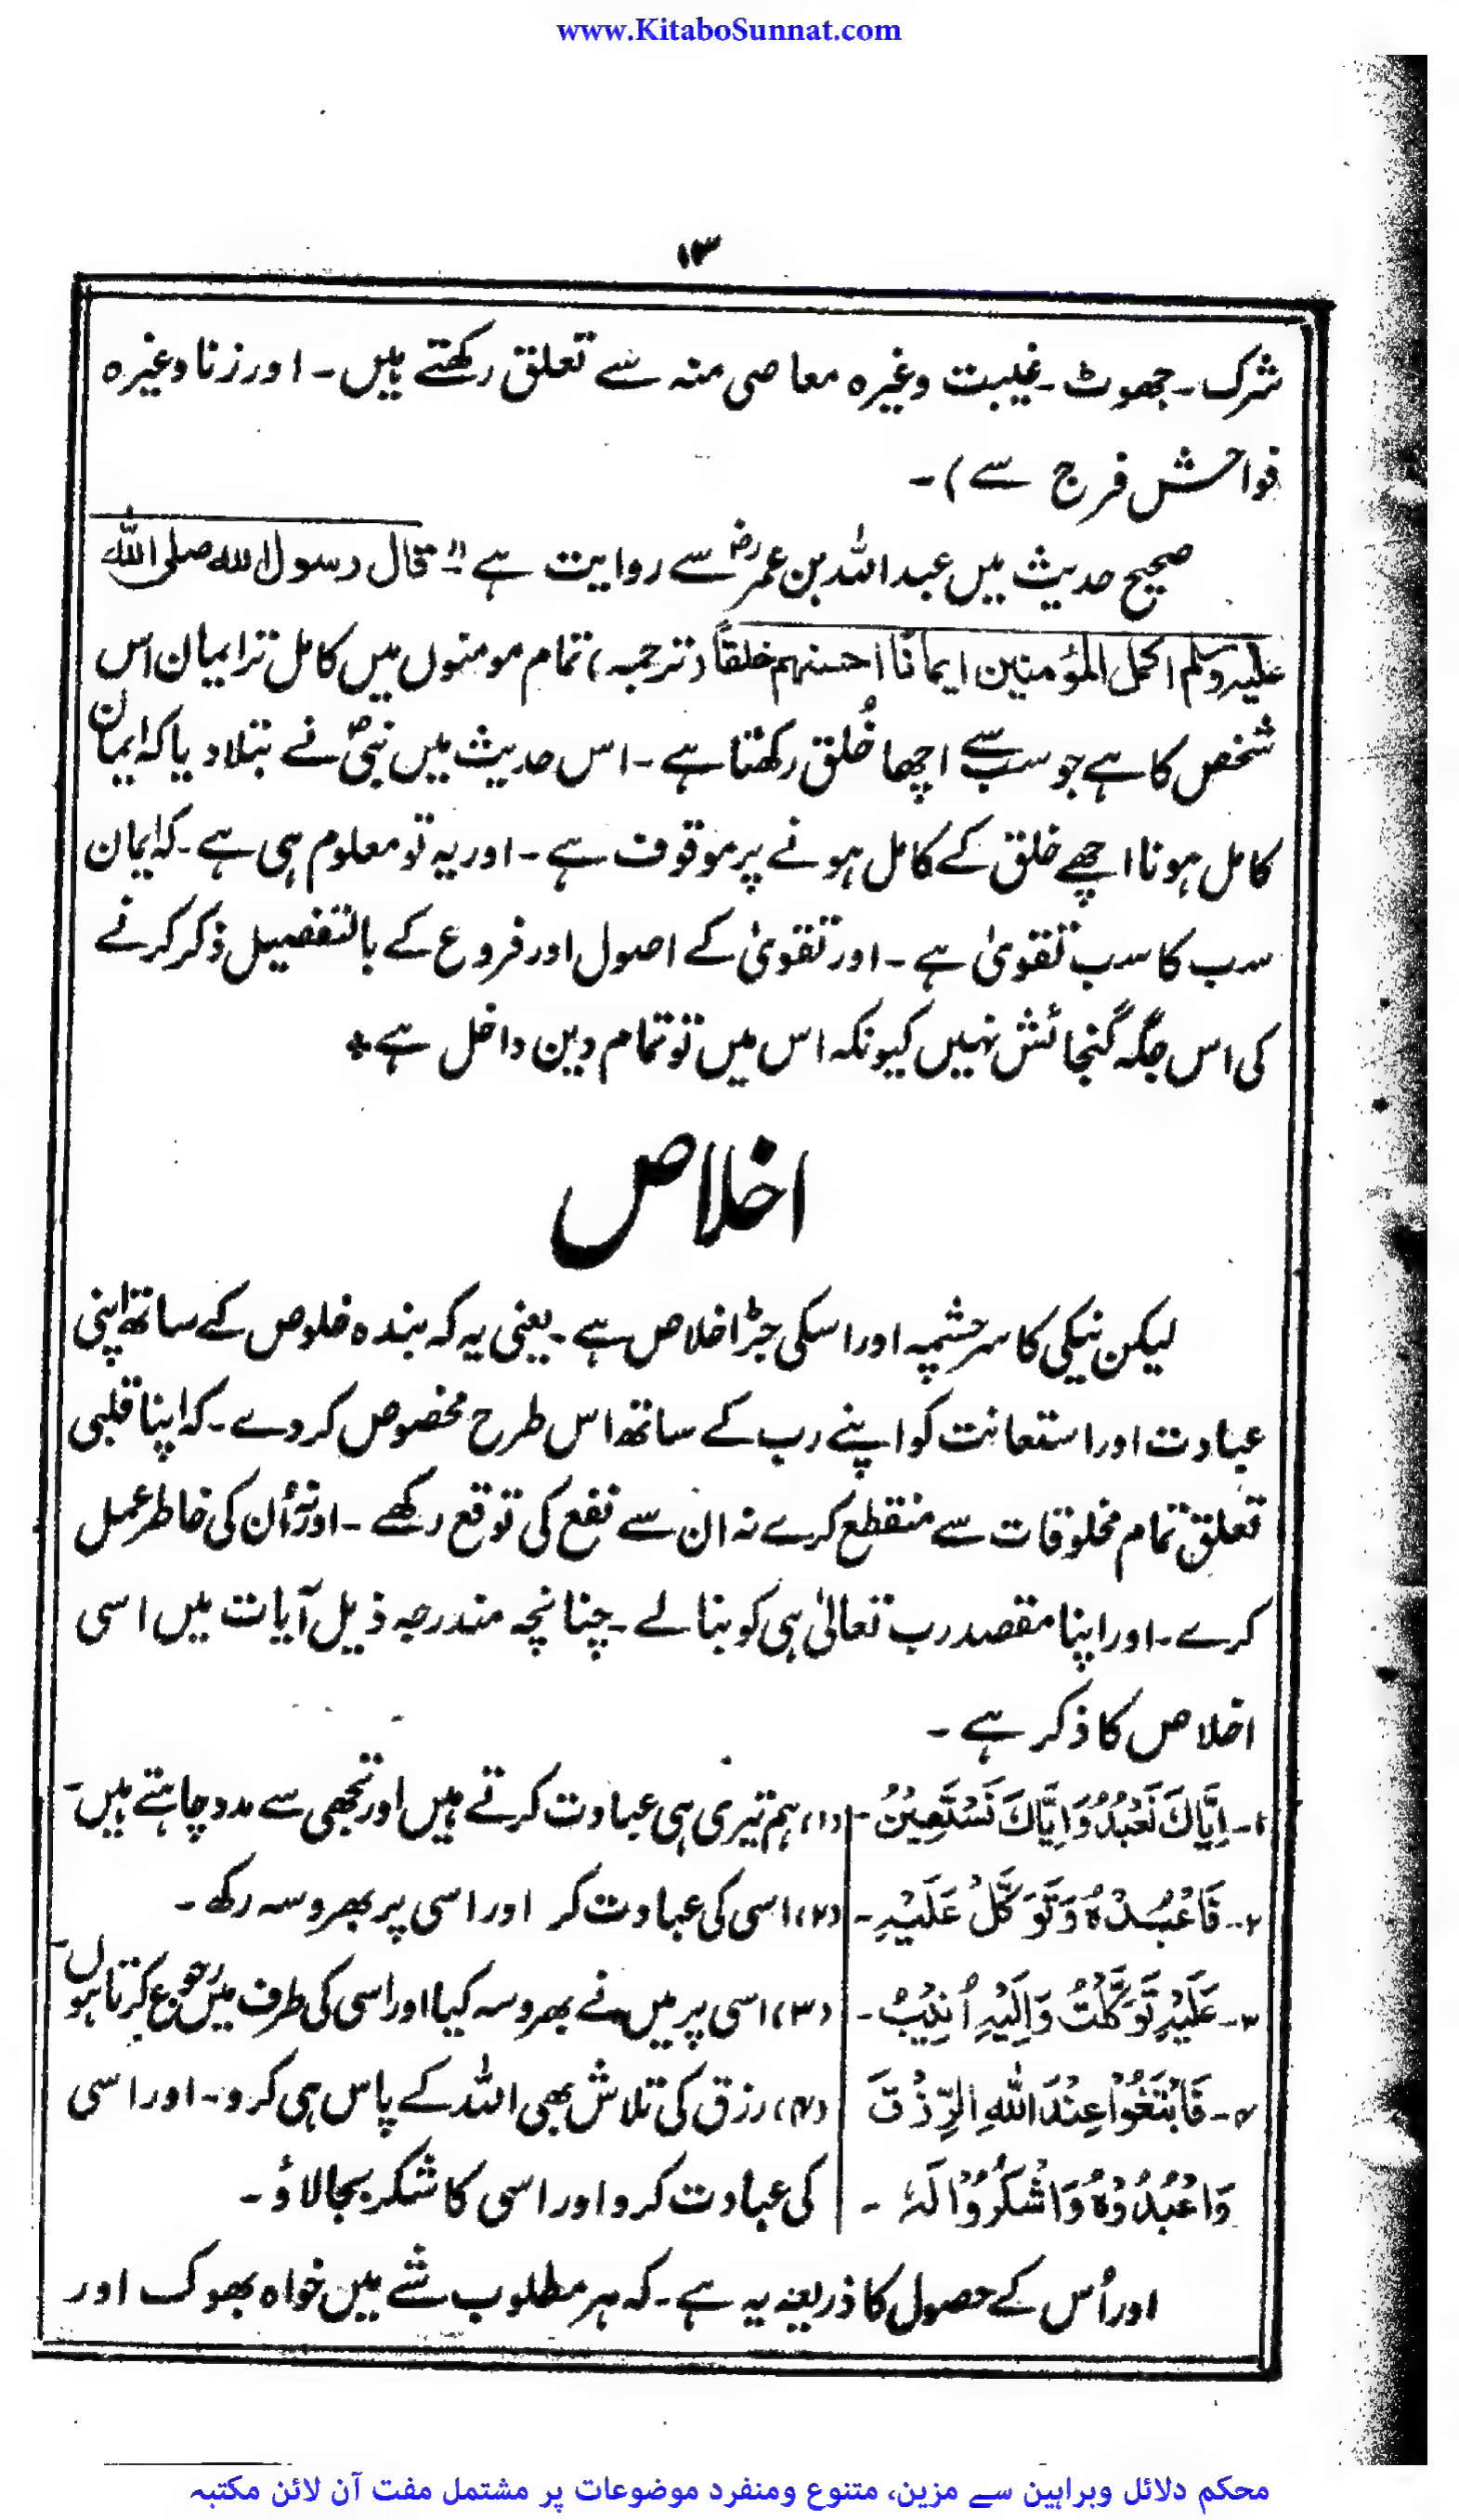 www.KitaboSunnat.com
۱۳
شرک۔ جھوٹ۔ غیبت وغیرہ معاصی منہ سے تعلق رکھتے ہیں۔ اور زنا وغیرہ
فواحش فرج سے)۔
صحیح حدیث میں عبد اللہ بن عمرؓ سے روایت ہے "قال رسول اللہ صلی اللہ
علیہ وسلم اکمل المؤمنین ایمانًا احسنہم خلقًا (ترجمہ) تمام مومنوں میں کامل تر ایمان اس
شخص کا ہے جو سب سے اچھا خُلق رکھتا ہے۔ اس حدیث میں نبیؐ نے بتلا دیا کہ ایمان
کامل ہونا اچھے خلق کے کامل ہونے پر موقوف ہے۔ اور یہ تو معلوم ہی ہے۔ کہ ایمان
سب کا سب تقویٰ ہے۔ اور تقویٰ کے اصول اور فروع کے بالتفصیل ذکر کرنے
کی اس جگہ گنجائش نہیں کیونکہ اس میں تو تمام دین داخل ہے٭
اخلاص
لیکن نیکی کا سرچشمہ اور اسکی جڑ اخلاص ہے۔ یعنی یہ کہ بندہ خلوص کے ساتھ اپنی
عبادت اور استعانت کو اپنے رب کے ساتھ اس طرح مخصوص کردے۔ کہ اپنا قلبی
تعلق تمام مخلوقات سے منقطع کرے نہ ان سے نفع کی توقع رکھے۔ اور نہ اُن کی خاطر عمل
کرے۔ اور اپنا مقصد رب تعالیٰ ہی کو بنالے۔ چنانچہ مندرجہ ذیل آیات میں اسی
اخلاص کا ذکر ہے۔
۱۔ اِیَّاكَ نَعْبُدُ وَاِیَّاكَ نَسْتَعِیْنُ۔ (۱) ہم تیری ہی عبادت کرتے ہیں اور تجھی سے مدد چاہتے ہیں۔
۲۔ فَاعْبُدْهُ وَتَوَكَّلْ عَلَیْهِ۔ (۲) اسی کی عبادت کر اور اسی پر بھروسہ رکھ۔
۳۔ عَلَیْهِ تَوَكَّلْتُ وَاِلَیْهِ اُنِیْبُ۔ (۳) اسی پر میں نے بھروسہ کیا اور اسی کی طرف میں رجوع کرتا ہوں۔
۴۔ فَابْتَغُوْا عِنْدَ اللّٰهِ الرِّزْقَ (۴) رزق کی تلاش بھی اللہ کے پاس ہی کرو۔ اور اسی
وَاعْبُدُوْهُ وَاشْكُرُوْا لَهٗ ۔ کی عبادت کرو اور اسی کا شکر بجالاؤ۔
اور اُس کے حصول کا ذریعہ یہ ہے۔ کہ ہر مطلوب شے میں خواہ بھوک اور
محکم دلائل وبراہین سے مزین، متنوع ومنفرد موضوعات پر مشتمل مفت آن لائن مکتبہ